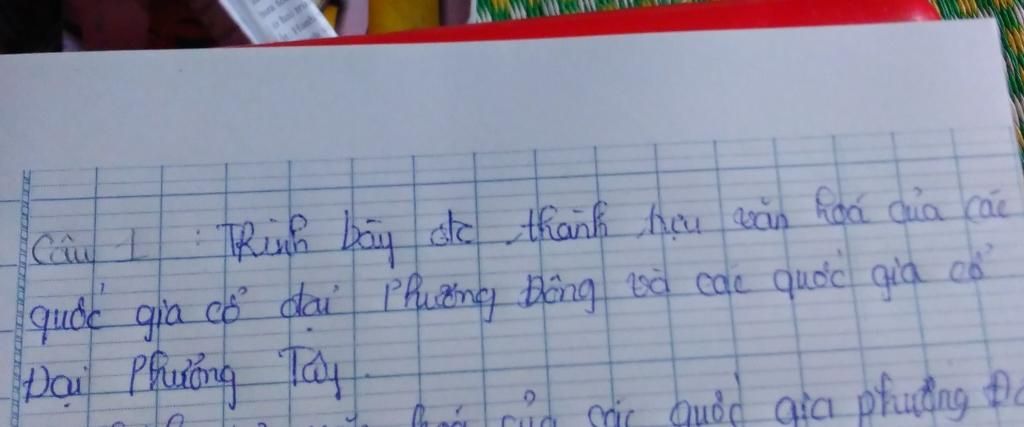 Câu 1 : Trình bày các thành hựu văn hoá của các
quốc gia cổ đại Phương Đông và các quốc gia cổ
Đại Phương Tây.
của các quốc gia phương Đô